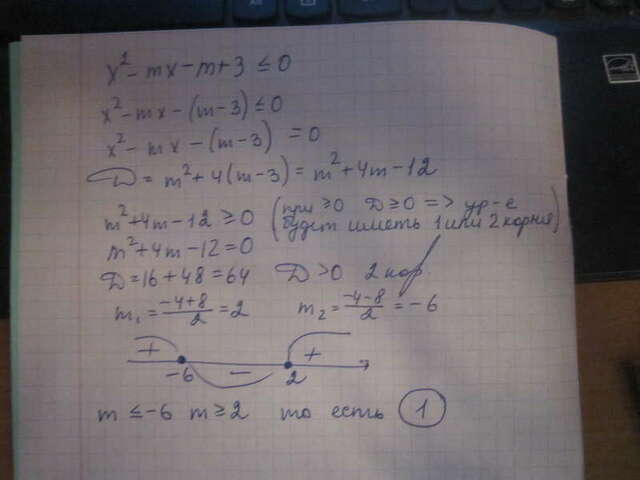 x² - mx - m + 3 ≤ 0
x² - mx - (m - 3) ≤ 0
x² - mx - (m - 3) = 0
D = m² + 4(m - 3) = m² + 4m - 12
m² + 4m - 12 ≥ 0 (при ≥ 0 D ≥ 0 => ур-е
будет иметь 1 или 2 корня)
m² + 4m - 12 = 0
D = 16 + 48 = 64 D > 0 2 кор.
m₁ = (-4+8)/2 = 2 m₂ = (-4-8)/2 = -6
+ - +
-6 2
m ≤ -6 m ≥ 2 то есть 1